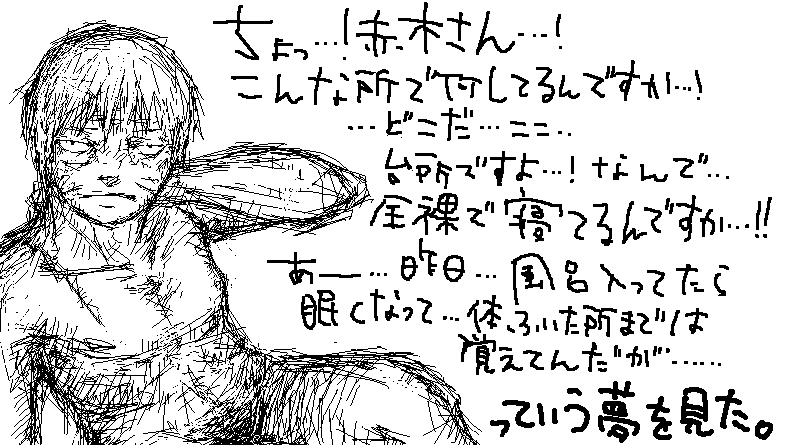 ちょっ…!赤木さん…!
こんな所で何してるんですか…!
…どこだ…ここ..
台所ですよ…!なんで…
全裸で寝てるんですか…!!
あー…昨日…風呂入ってたら
眠くなって…体ふいた所までは
覚えてんだが……
っていう夢を見た。